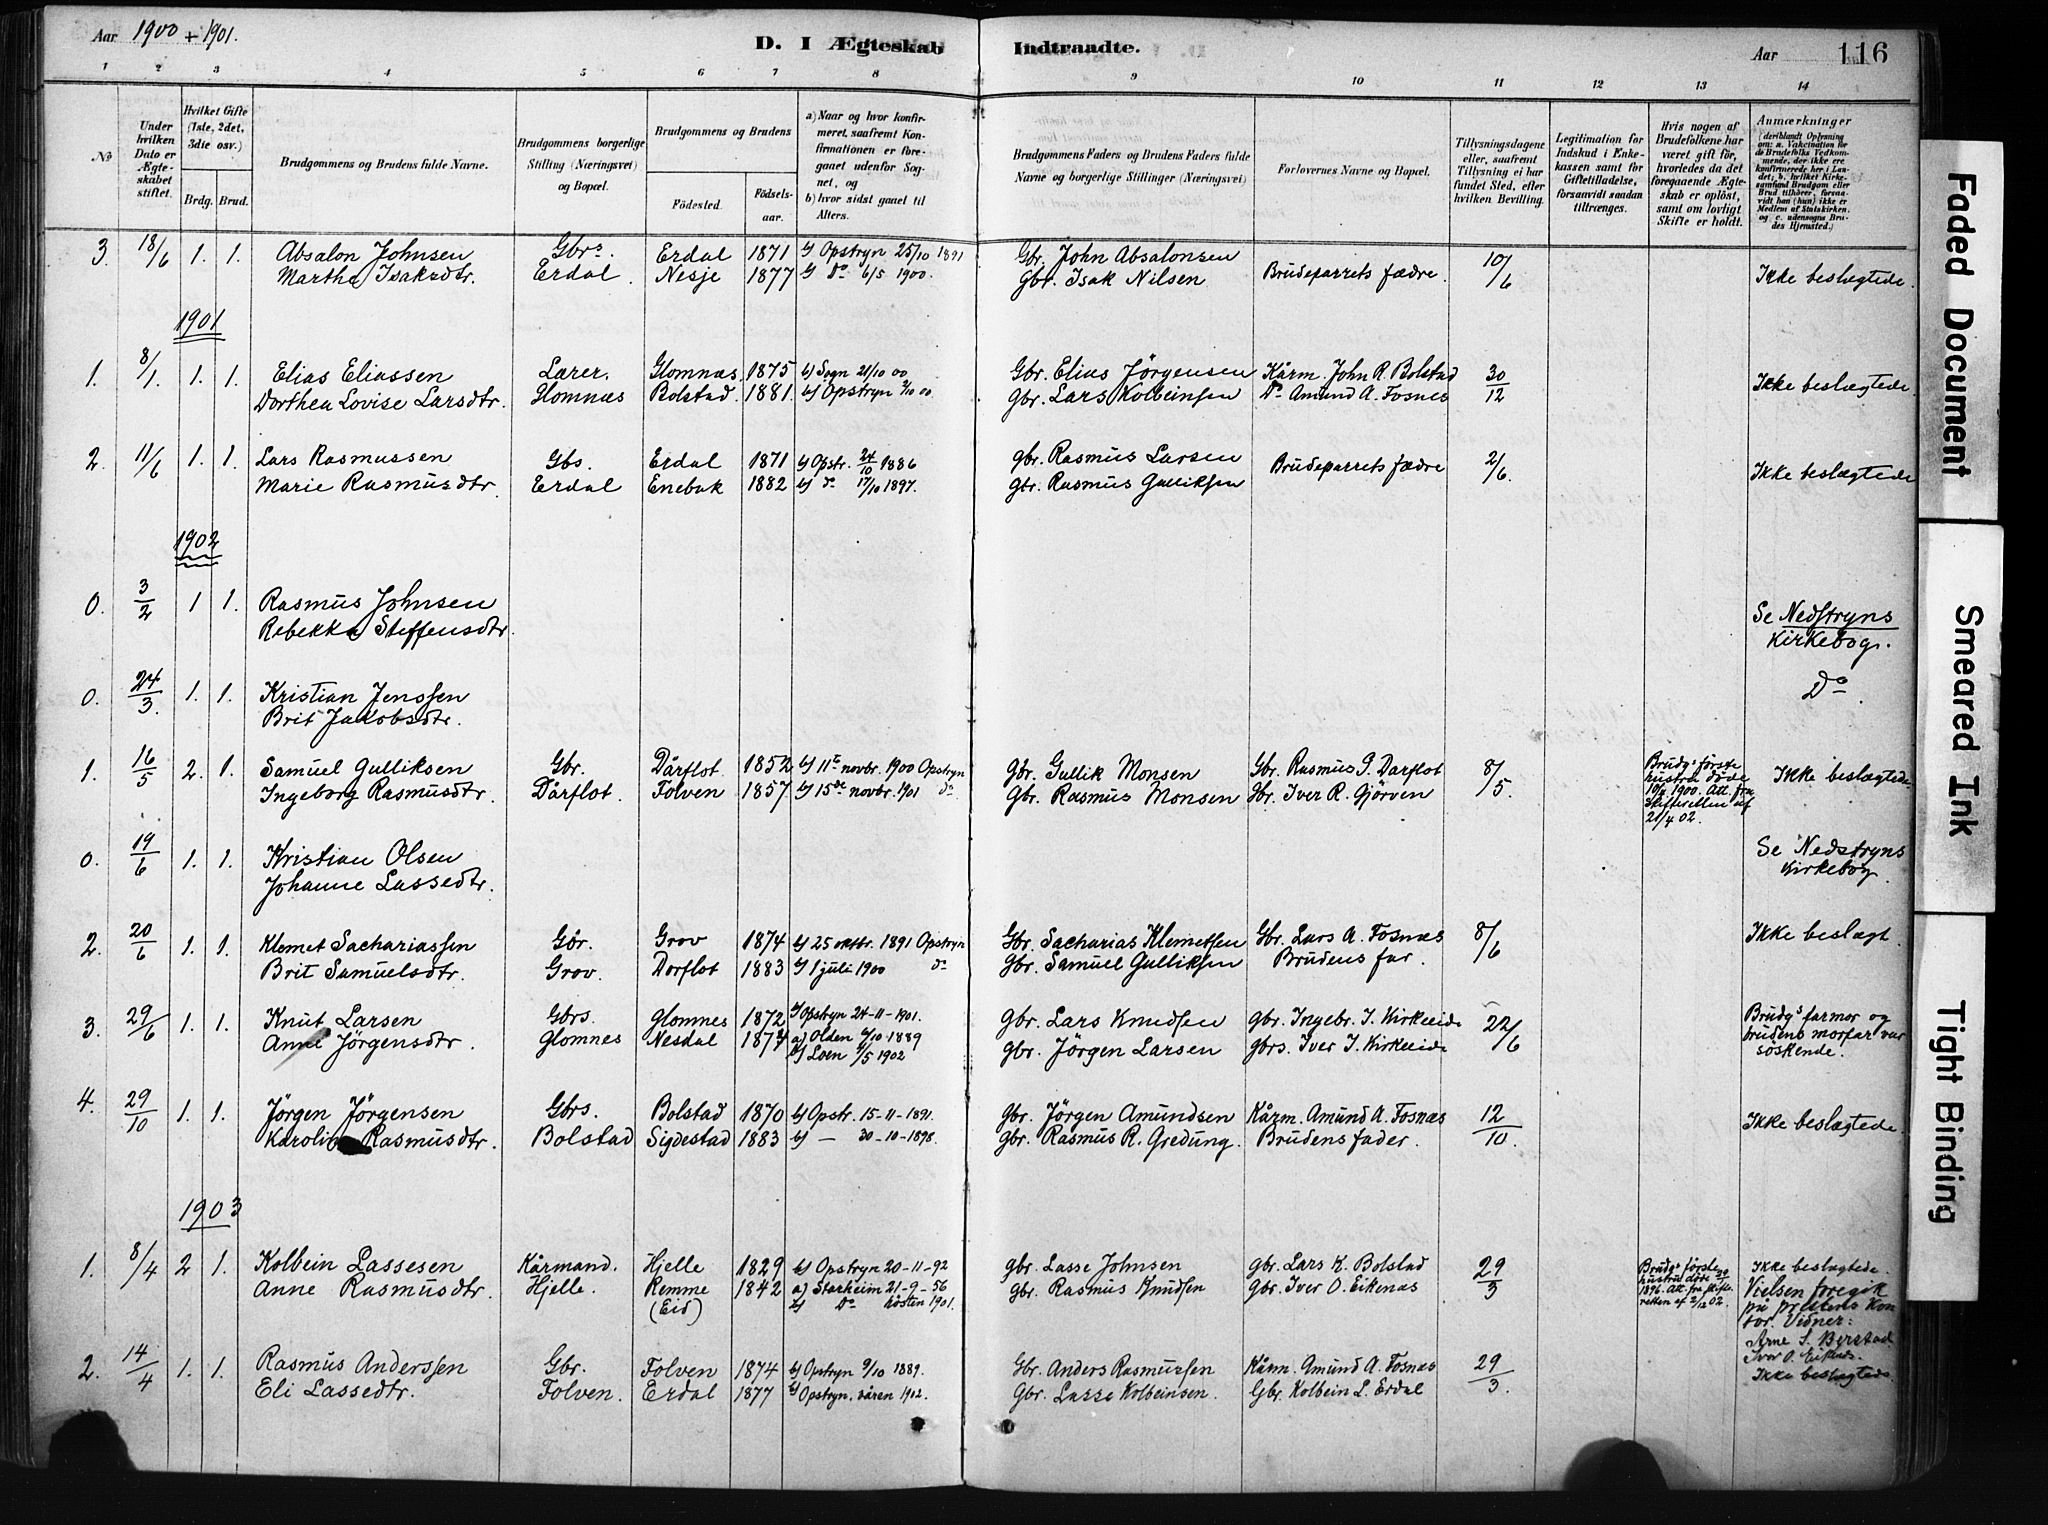 Aar 1900 + 1901.
D. I Ægteskab Indtraadte.
Aar 116
1 2 3 4 5 6 7 8 9 10 11 12 13 14
No
Under hvilken Dato er Ægteskabet stiftet.
Hvilket Gifte (1ste, 2det, 3die osv.)
Brdg. Brud.
Brudgommens og Brudens fulde Navne.
Brudgommens borgerlige Stilling (Næringsvei) og Bopæl.
Brudgommens og Brudens
Födested. Födselsaar.
a) Naar og hvor konfirmeret, saafremt Konfirmationen er foregaaet udenfor Sognet, og
b) hvor sidst gaaet til Alters.
Brudgommens Faders og Brudens Faders fulde Navne og borgerlige Stillinger (Næringsvei)
Forlovernes Navne og Bopæl.
Tillysningsdagene eller, saafremt Tillysning ei har fundet Sted, efter hvilken Bevilling.
Legitimation for Indskud i Enkekassen samt for Giftetilladelse, forsaavidt saadan tiltrænges.
Hvis nogen af Brudefolkene har været gift før, hvorledes da det foregaaende Ægteskab er oplöst, samt om lovligt Skifte er holdt.
Anmærkninger
(deriblandt Oplysning om: a. Vakcination for de Brudefolks Vedkommende, der ikke ere konfirmerede her i Landet; b. hvilket Kirkesamfund Brudgom eller Brud tilhörer, forsaavidt han (hun) ikke er Medlem af Statskirken, og c. udensogns Brudes Hjemsted.)
3. 18/6 1. 1. Absalon Johnsen Gbrs. Erdal 1871 b) Opstryn 25/10 1891 Gbr. John Absalonsen 10/6
Martha Isaksdtr. Erdal. Nesje 1877 b) Do 6/5 1900. Gbr. Isak Nilsen Brudeparrets fædre. Ikke beslægtede.
1901
1. 8/1. 1. 1. Elias Eliassen Lærer. Glomnæs. 1875 b) Sogn 21/10 00 Gbr. Elias Jörgensen Kårm. John R. Bolstad 30/12 Ikke beslægtede.
Dorthea Lovise Larsdtr. Glomnæs Bolstad. 1881. b) Opstryn 7/10 00. Gbr. Lars Kolbeinsen Do Amund A. Fosnes
2. 11/6 1. 1. Lars Rasmussen Gbs. Erdal 1871 b) Opstr. 24/10 1886 gbr. Rasmus Larsen Brudeparrets fædre 2/6. Ikke beslægtede
Marie Rasmusdtr. Erdal Enebak 1882 b) do 17/10 1897. gbr. Rasmus Gulliksen
1902
0. 3/2 1 1. Rasmus Johnsen Se Nedstryns
Rebekka Steffensdtr. Kirkebog.
0. 24/3. 1. 1. Kristian Jenssen Do
Brit Jakobsdtr.
1. 16/5 2. 1. Samuel Gulliksen Gbr. Dårflot 1852 b) 11te novbr. 1900 Opstryn gbr. Gullik Monsen Gbr. Rasmus G. Darflot 8/5. Brudgs første hustru døde 10/5 1900. Att. fra skifteretten af 21/4 02. Ikke beslægtede
Ingeborg Rasmusdtr. Dårflot. Folven 1857 b) 15de novbr. 1901 do Gbr. Rasmus Monsen Gbr. Iver R. Gjörven
0. 19/6 1. 1. Kristian Olsen Se Nedstryns
Johanne Lassedtr. Kirkebog.
2. 20/6 1. 1. Klemet Sachariassen Gbr. Grov 1874 b) 25 oktbr. 1891 Opstryn Gbr. Sacharias Klemetsen Gbr. Lars A. Fosnæs 8/6 Ikke beslægt.
Brit Samuelsdtr. Grov. Dorflot 1883 b) 1 juli 1900 do gbr. Samuel Gulliksen Brudens far.
3. 29/6 1. 1. Knut Larsen Gbrs. glomnes 1872 b) Opstryn 24-11-1901. gbr. Lars Knudsen gbr. Ingebr. I. Kirkeeide 22/6 Brudgs farmor og
Anne Jörgensdtr. glomnes Nesdal a) Olden 6/10 1889 gbr. Jörgen Larsen gbrs. Iver I. Kirkeeide brudens morfar var
b) Loen 4/5 1902 söskende.
4. 29/10 1. 1. Jörgen Jörgensen Gbrs. Bolstad 1870 b) Opstr. 15-11-1891. gbr. Jörgen Amundsen Kårm. Amund A. Fosnæs 12/10. Ikke beslægtede.
Karoline Rasmusdtr. Bolstad Sigdestad 1883 b) — 30-10-1898. gbr. Rasmus R. Gredung. Brudens fader.
1903
1. 8/4 2 1. Kolbein Lassesen Kårmand. Hjelle 1829 b) Opstryn 20-11-92 gbr. Lasse Johnsen gbr. Lars K. Bolstad 29/3 Brudgs første hustru døde 1896. Att. fra skifteretten af 2/12 02. Ikke beslægtede.
Anne Rasmusdtr. Hjelle. Remme 1842 a) Starheim 21-9-56 gbr. Rasmus Knudsen gbr. Iver O. Eikenæs Vielsen foregik
(Eid) b) Do hösten 1901. på prestens kontor. Vidner:
Arne S. Berstad
Iver O. Eikenæs.
2. 14/4 1. 1. Rasmus Anderssen Gbr. Folven 1874 b) Opstryn 9/10 1889. Gbr. Anders Rasmussen Kårm. Amund A. Fosnæs 29/3. Ikke beslægtede.
Eli Lassedtr. Folven. Erdal 1877 b) Opstryn. våren 1902. Gbr. Lasse Kolbeinsen. Gbr. Kolbein L. Erdal
Faded Document
Smeared Ink
Tight Binding